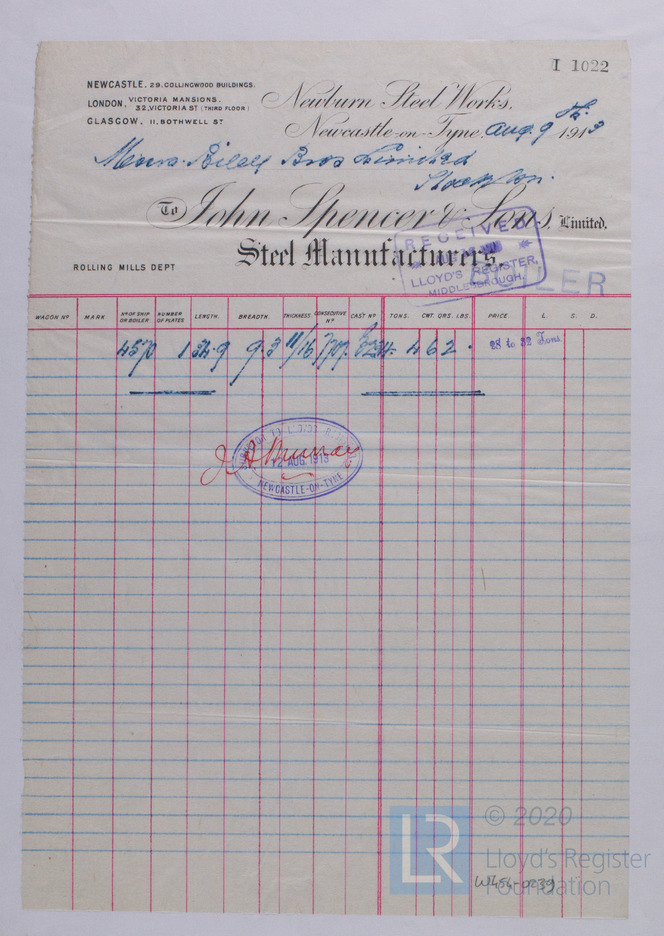 I 1022
NEWCASTLE. 29. COLLINGWOOD BUILDINGS.
LONDON, VICTORIA MANSIONS. 32, VICTORIA ST (THIRD FLOOR)
GLASGOW, 11, BOTHWELL ST
Newburn Steel Works,
Newcastle-on-Tyne, Aug. 9th 1913
Bros Limited
Stockton.
To John Spencer & Sons, Limited.
Steel Manufacturers.
ROLLING MILLS DEPT
RECEIVED
LLOYD'S REGISTER,
MIDDLESBROUGH.
BOILER
WAGON Nº MARK Nº OF SHIP OR BOILER NUMBER OF PLATES LENGTH. BREADTH. THICKNESS. CONSECUTIVE Nº CAST Nº TONS. CWT. QRS. LBS. PRICE. L. S. D.
4570 1 9.3 11/16 4 6 2 . 28 to 32 Tons
J. A. Murray
12 AUG. 1913
NEWCASTLE-ON-TYNE
LR
© 2020
Lloyd's Register
Foundation
W454-0239